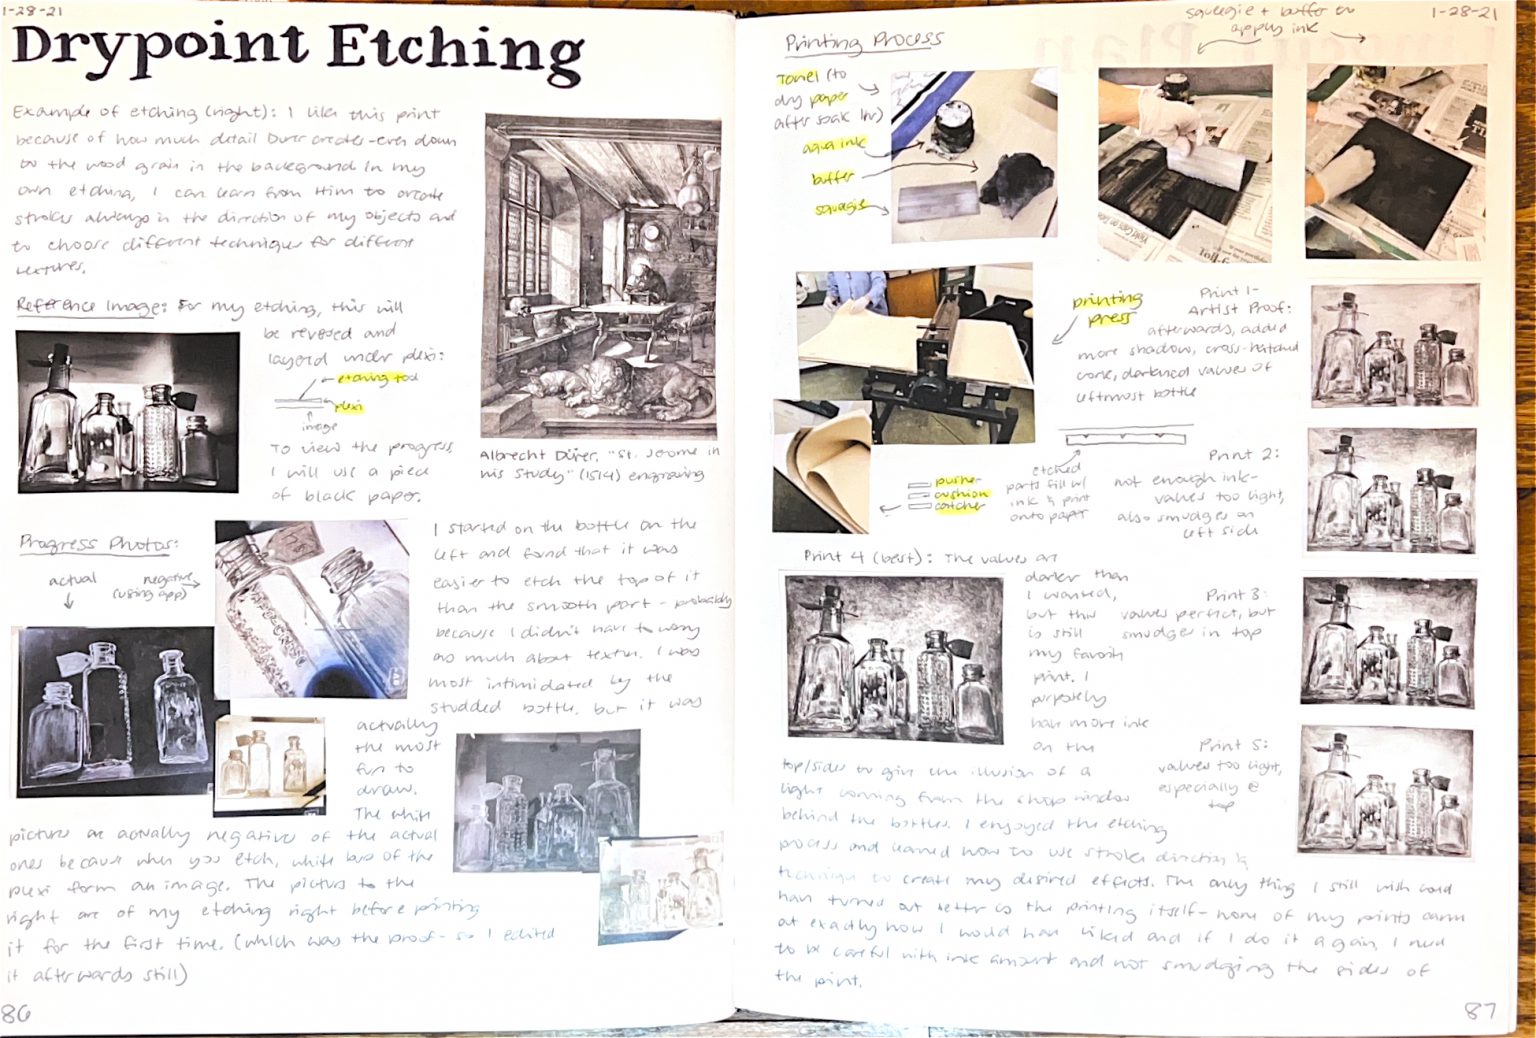 1-28-21
Drypoint Etching
Example of etching (right): I like this print
because of how much detail Durer creates - even down
to the wood grain in the background in my
own etching, I can learn from Him to create
strokes always in the direction of my objects and
to choose different techniques for different
textures.
Reference Image: For my etching, this will
be revesed and
layered under plexi:
etching tool
plexi
image
To view the progress,
I will use a piece
of black paper.
Albrecht Dürer, "St. Jerome in
his Study" (1514) engraving
Progress Photos:
actual
negative
(using app)
I started on the bottle on the
left and found that it was
easier to etch the top of it
than the smooth part - probably
because I didn't have to worry
as much about texture. I was
most intimidated by the
studded bottle, but it was
actually
the most
fun to
draw.
The white
pictures are actually negative of the actual
ones because when you etch, white bits of the
plexi form an image. The picture to the
right are of my etching right before printing
it for the first time. (which was the proof - so I edited
it afterwards still)
86
squeegie + buffer to
apply ink
1-28-21
Printing Process
Towel (to
dry paper
after soak 1hr)
aqua ink
buffer
squegie
printing
press
Print 1-
Artist Proof:
afterwards, added
more shadow, cross-hatched
work, darkened values of
leftmost bottle
pusher
cushion
catcher
etched
parts fill w/
ink & print
onto paper
Print 2:
not enough ink-
values too light,
also smudges on
left side
Print 4 (best): The values are
darker than
I wanted,
but this
is still
my favorite
print. I
purposely
have more ink
on the
top/sides to give the illusion of a
light coming from the window
behind the bottles. I enjoyed the etching
process and learned how to use stroke direction &
technique to create my desired effects. The only thing I still wish could
have turned out better is the printing itself - none of my prints came
out exactly how I would have liked and if I do it again, I need
to be careful with ink amount and not smudging the sides of
the print.
Print 3:
values perfect, but
smudges in top
Print 5:
values too light,
especially @
top
87